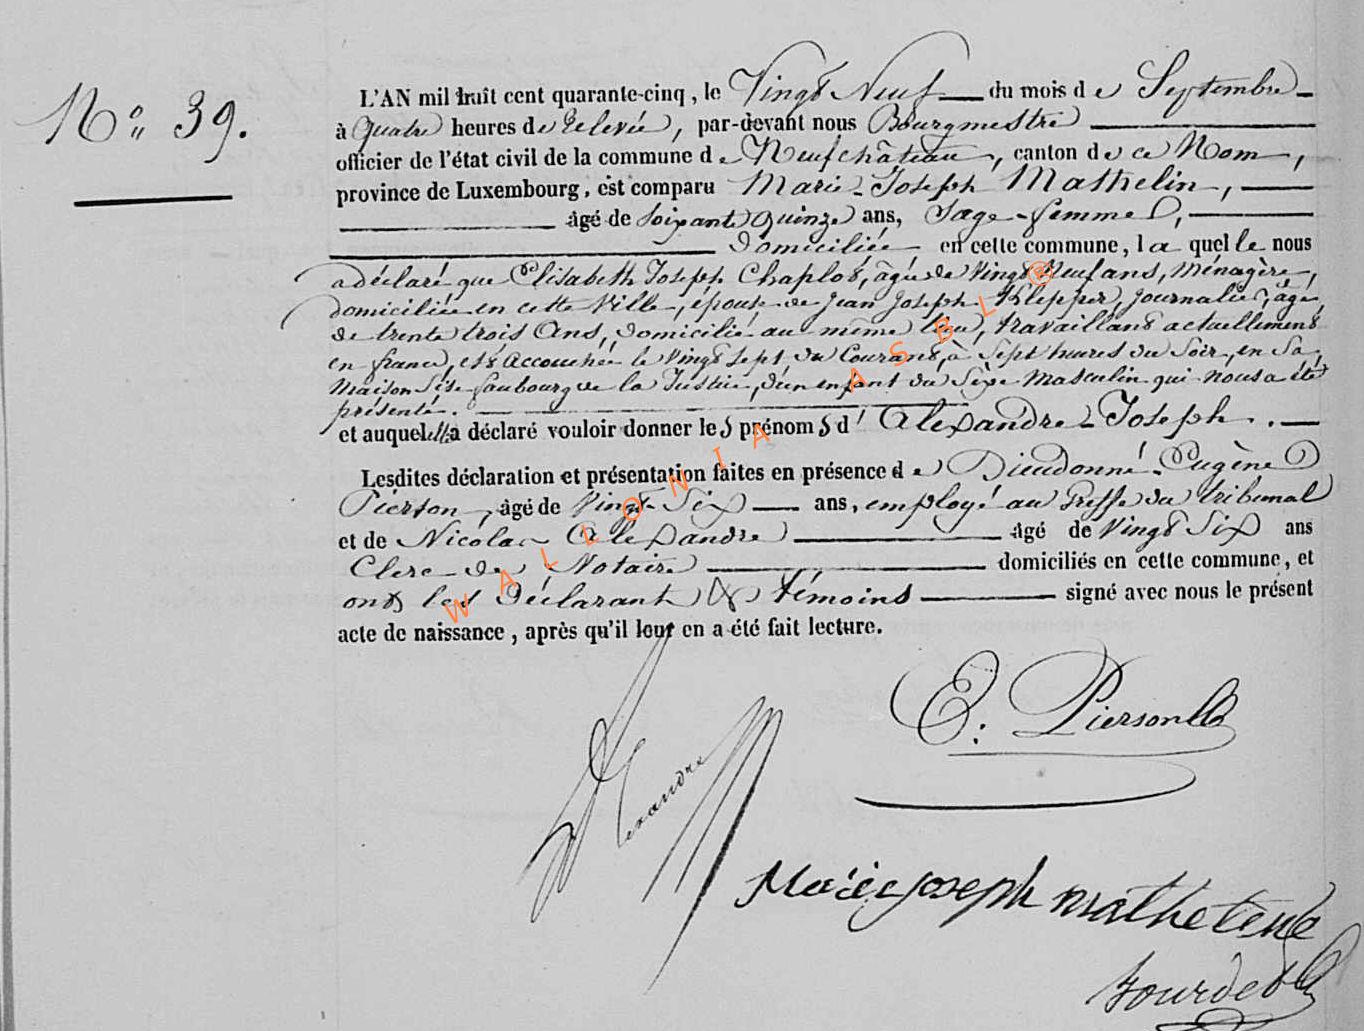 N° 39.
L'AN mil huit cent quarante-cinq, le Vingt Neuf du mois de Septembre
à quatre heures de relevée, par-devant nous Bourgmestre
officier de l'état civil de la commune de Neufchâteau, canton de ce Nom,
province de Luxembourg, est comparu Marie-Joseph Mathelin,
âgé de soixante quinze ans, Sage-femme,
domiciliée en cette commune, laquelle nous
a déclaré que Elisabeth Joseph Chaplot, âgée de Vingt Neuf ans, Ménagère,
domiciliée en cette Ville, épouse de Jean Joseph Klepper, journalier, âgé
de trente trois Ans, domicilié au même lieu, travaillant actuellement
en france, est Accouchée le Vingt sept du Courant, à Sept heures du Soir, en Sa
Maison Sise faubourg de la Justice, d'un enfant du Sèxe Masculin qui nous a été
présenté.
et auquel elle a déclaré vouloir donner les prénoms d'Alexandre-Joseph.
Lesdites déclaration et présentation faites en présence de Dieudonné-Eugène
Pierson, âgé de Vingt-Six ans, employé au Greffe du tribunal
et de Nicolas Alexandre âgé de Vingt Six ans
Clerc de Notaire domiciliés en cette commune, et
ont les Déclarant & témoins signé avec nous le présent
acte de naissance, après qu'il leur en a été fait lecture.
E. Pierson
Alexandre
Marie joseph
WALLONIA ASBL ®